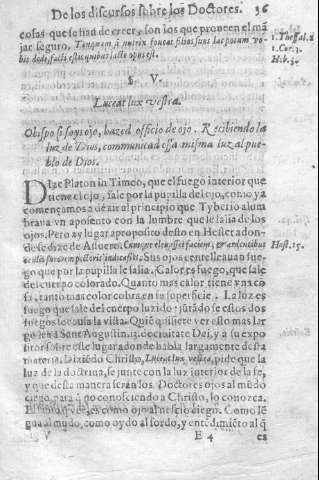 De los discursos sobre los Doctores. 36
cosas que se han de creer, son los que proueen el mā
jar seguro. Tanquam si nutrix foueat filios suos lac potum vo-
bis dedi,
1. Thessal. 2
1. Cor. 3.
Heb. 5.
§. V.
Luceat lux vestra.
Obispo si soys ojo, hazed officio de ojo. Recibiendo la
luz de Dios, communicad essa misma luz al pue-
blo de Dios.
DIze Platon in Timeo, que el fuego interior que
tiene el ojo, sale por la pupilla del ojo, como ya
començamos a dezir al principio que Tyberio alum
braua vn aposento con la lumbre que le salia de los
ojos. Pero ay lugar aproposito desto en Hester adon-
de se dize de Assuero. Cumque eleuasset faciem, & ardentibus
oculis furorem pectoris indicasset. Sus ojos centelleauan fue-
Hest. 15.
go que por la pupilla le salia. Calor es fuego, que sale
del cuerpo colorado. Quanto mas calor tiene vn co
si, tanto mas color cobra en su superficie. La luz es
fuego que sale del cuerpo luzido: jūtādo se estos dos
fuegos se causa la vista. Quē quisiere ver esto mas lar
go lea a Sant Augustin. 13. de ciuitate Dei, y a su expo
sitor sobre este lugar adonde habla largamente desta
materia. Diziēdo Christo, Luceat lux vestra, pide que la
luz de la doctrina, se junte con la luz interior de la fe,
y que desta manera serān los Doctores ojos al mūdo
ciego para q̄ no conosciendo a Christo, lo conozca.
ver, es como ojo al necio ciego. Como lē
gua al mudo, como oydo al sordo, y entēdimiēto al q̄
V E 4 es